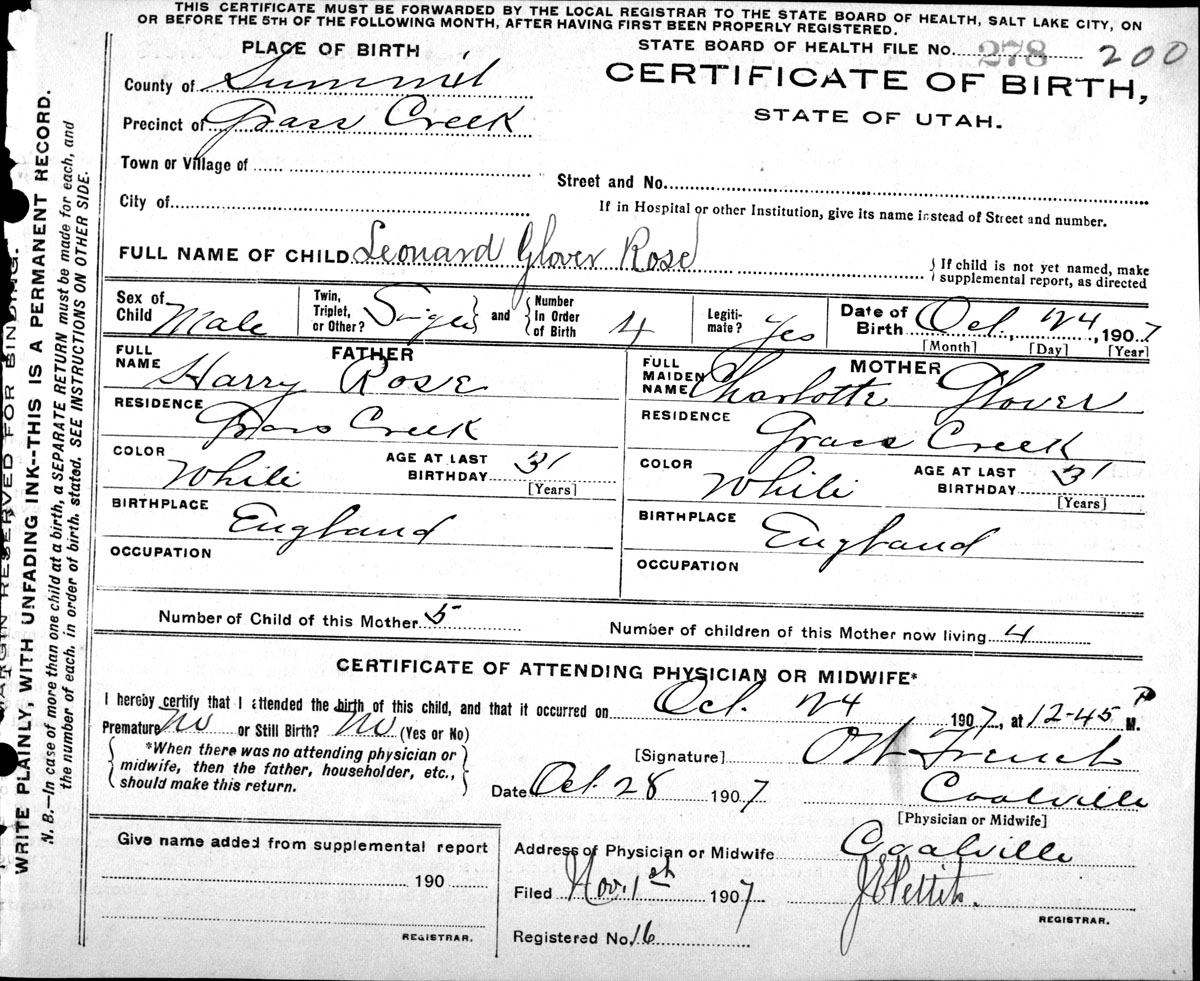 THIS CERTIFICATE MUST BE FORWARDED BY THE LOCAL REGISTRAR TO THE STATE BOARD OF HEALTH, SALT LAKE CITY, ON
OR BEFORE THE 5TH OF THE FOLLOWING MONTH, AFTER HAVING FIRST BEEN PROPERLY REGISTERED.
PLACE OF BIRTH
STATE BOARD OF HEALTH FILE NO. 278 200
County of Summit
CERTIFICATE OF BIRTH,
Precinct of Grass Creek
STATE OF UTAH.
Town or Village of
Street and No.
City of
If in Hospital or other Institution, give its name instead of Street and number.
FULL NAME OF CHILD Leonard Glover Rose
If child is not yet named, make
supplemental report, as directed
Sex of Child Male
Twin, Triplet, or Other? Single and Number In Order of Birth 4
Legiti-mate? Yes
Date of Birth Oct. 24, 1907
[Month] [Day] [Year]
FATHER
FULL NAME Harry Rose
MOTHER
FULL MAIDEN NAME Charlotte Glover
RESIDENCE Grass Creek
RESIDENCE Grass Creek
COLOR White AGE AT LAST BIRTHDAY 31
[Years]
COLOR White AGE AT LAST BIRTHDAY 31
[Years]
BIRTHPLACE England
BIRTHPLACE England
OCCUPATION
OCCUPATION
Number of Child of this Mother 5
Number of children of this Mother now living 4
CERTIFICATE OF ATTENDING PHYSICIAN OR MIDWIFE*
I hereby certify that I attended the birth of this child, and that it occurred on Oct. 24 1907, at 12-45 P M.
Premature No or Still Birth? No (Yes or No)
*When there was no attending physician or
midwife, then the father, householder, etc.,
should make this return.
[Signature] O W French
Date Oct. 28 1907 Coalville
[Physician or Midwife]
Give name added from supplemental report
190
REGISTRAR.
Address of Physician or Midwife Coalville
Filed Nov. 1st 1907 J E Pettit.
REGISTRAR.
Registered No. 16
MARGIN RESERVED FOR BINDING.
WRITE PLAINLY, WITH UNFADING INK--THIS IS A PERMANENT RECORD.
N. B.—In case of more than one child at a birth, a SEPARATE RETURN must be made for each, and
the number of each, in order of birth, stated. SEE INSTRUCTIONS ON OTHER SIDE.